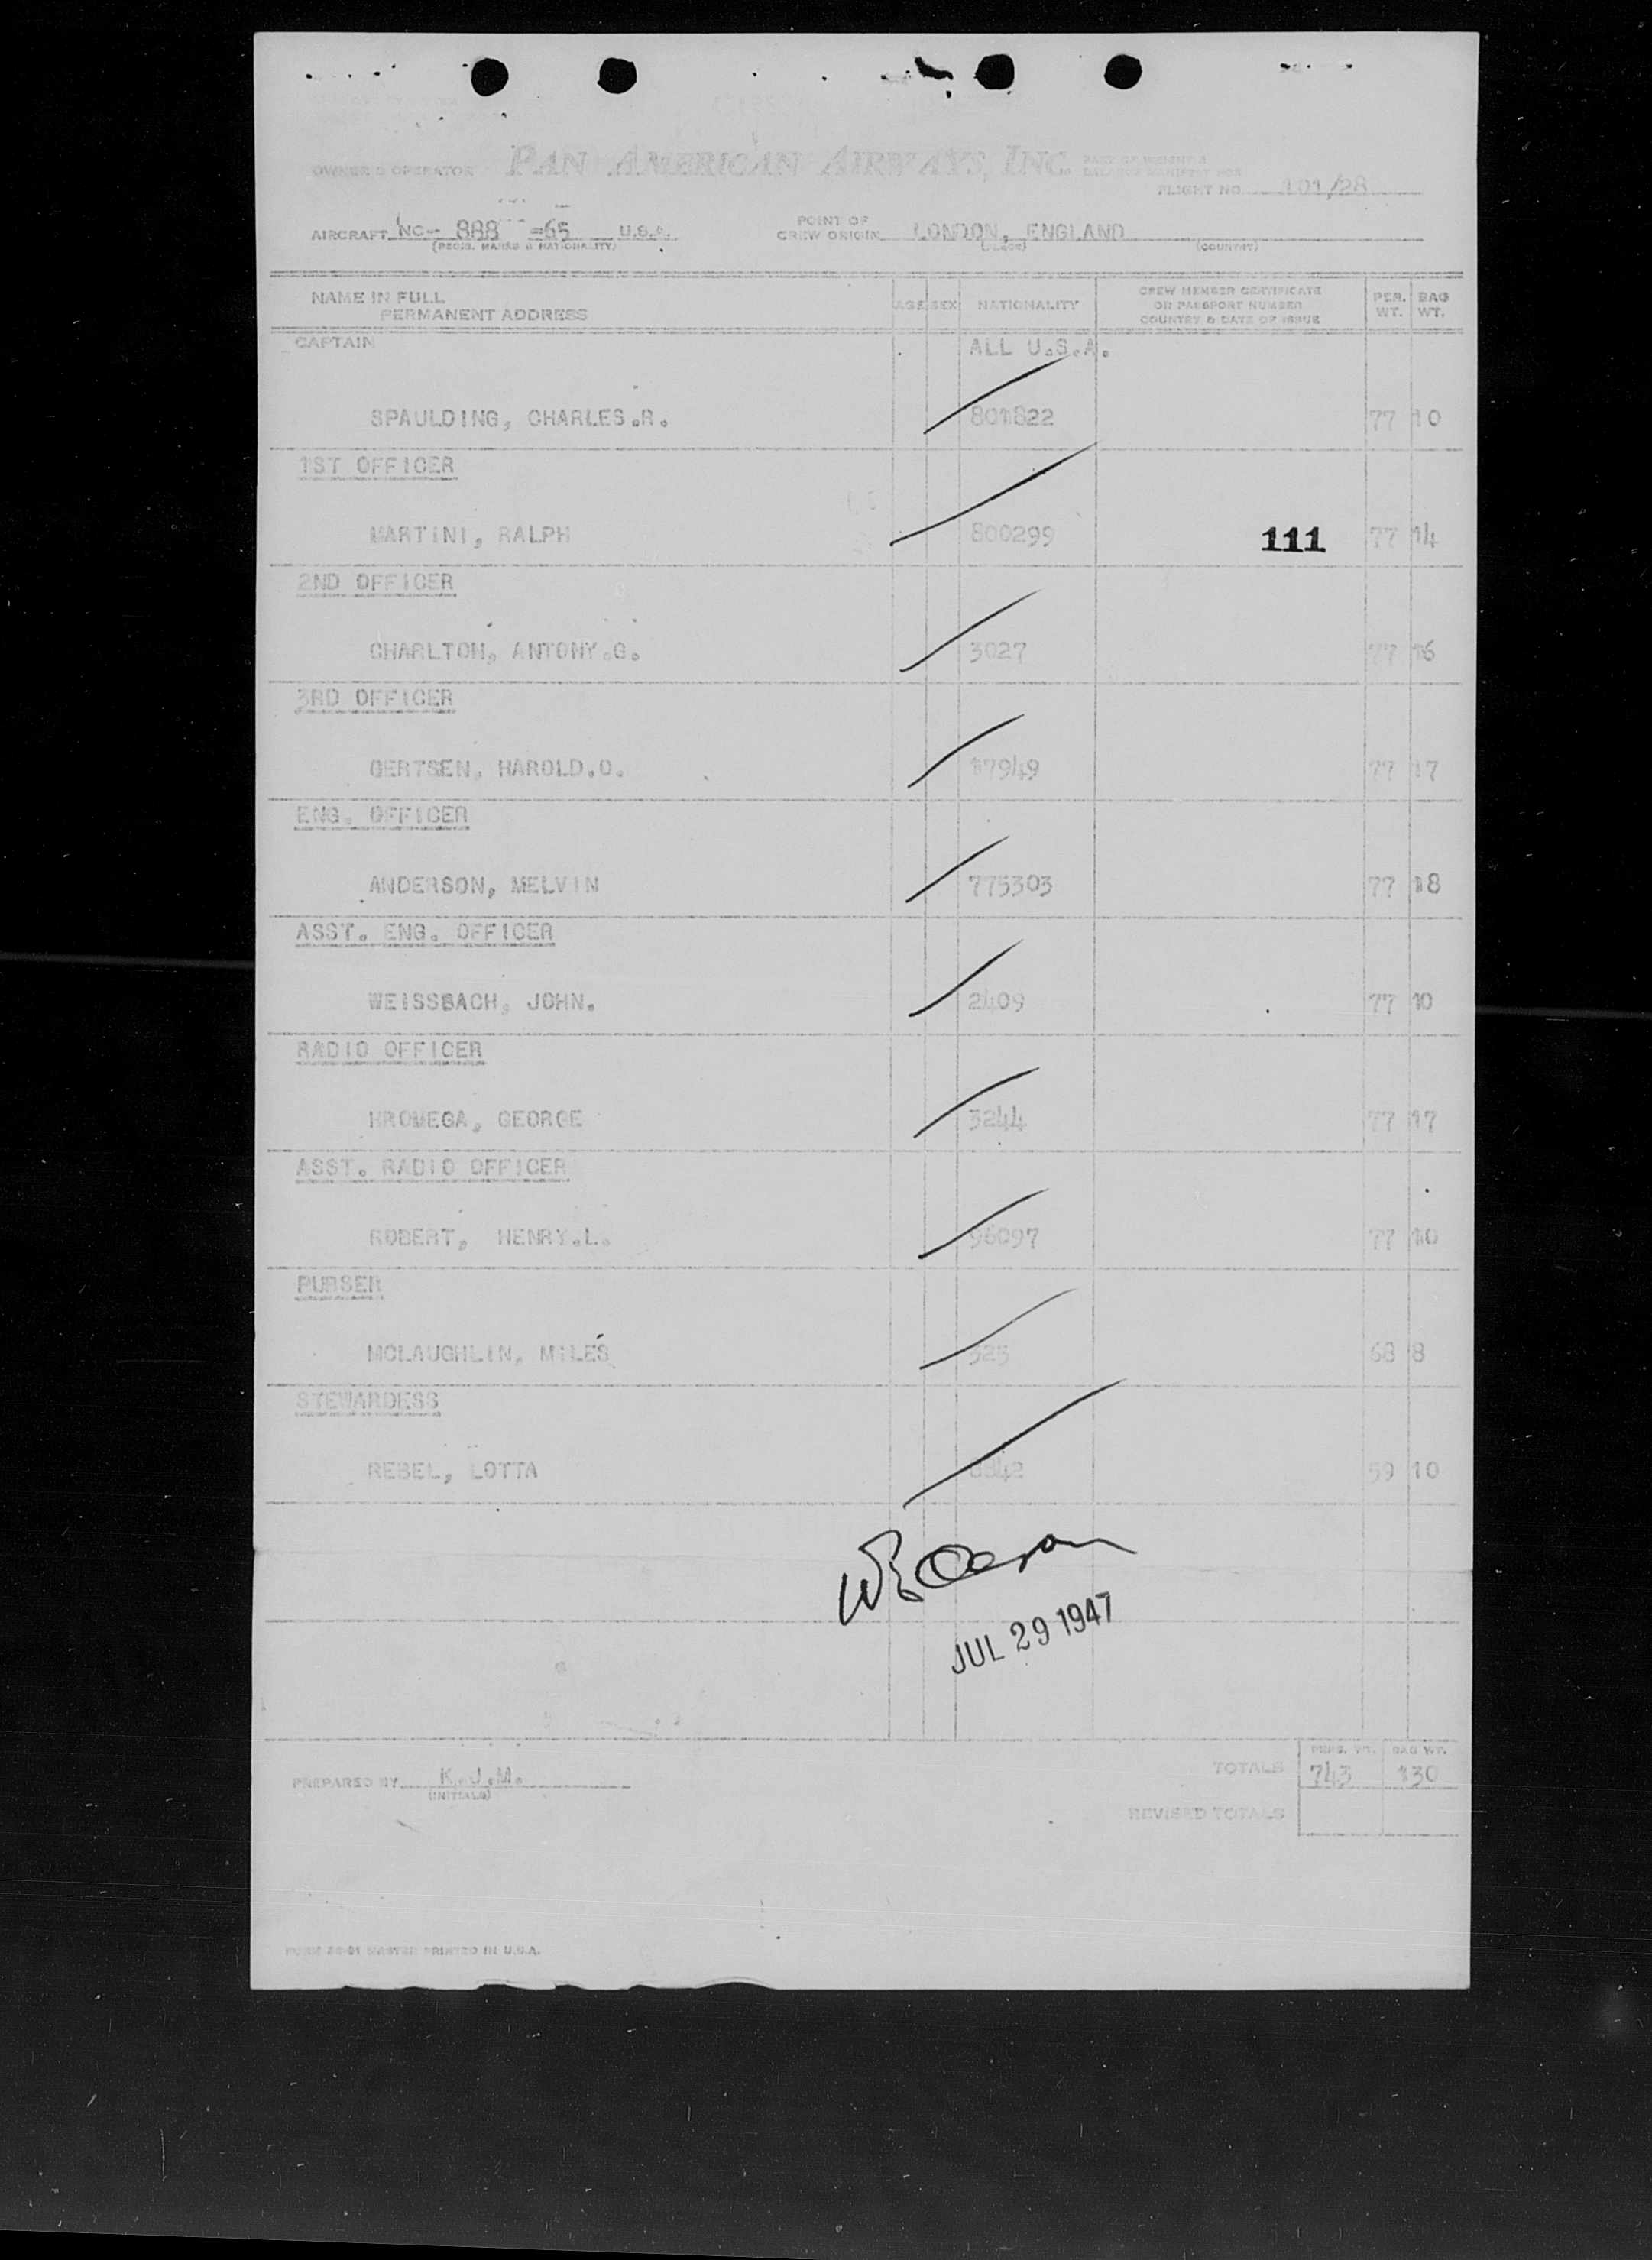 OWNER & OPERATOR PAN AMERICAN AIRWAYS, INC. PART OF WEIGHT &
BALANCE MANIFEST
FLIGHT NO. 101/28
AIRCRAFT NC- 888 =65 U.S.A. POINT OF CREW ORIGIN LONDON, ENGLAND
(REGIS. MARKS & NATIONALITY) (PLACE) (COUNTRY)
NAME IN FULL PERMANENT ADDRESS AGE SEX NATIONALITY CREW MEMBER CERTIFICATE OR PASSPORT NUMBER COUNTRY & DATE OF ISSUE PER. WT. BAG WT.
CAPTAIN ALL U.S.A.
SPAULDING, CHARLES.R. 801822 77 10
1ST OFFICER
MARTINI, RALPH 800299 111 77 14
2ND OFFICER
CHARLTON, ANTONY.G. 3027 77 16
3RD OFFICER
GERTSEN, HAROLD.O. 17949 77 17
ENG. OFFICER
ANDERSON, MELVIN 775303 77 18
ASST. ENG. OFFICER
WEISSBACH, JOHN. 2409 77 10
RADIO OFFICER
HROMEGA, GEORGE 3244 77 17
ASST. RADIO OFFICER
ROBERT, HENRY.L. 96097 77 10
PURSER
MCLAUGHLIN, MILES 68 8
STEWARDESS
REBEL, LOTTA 59 10
JUL 29 1947
PERS. WT. BAG WT.
PREPARED BY K.J.M. TOTALS 743 130
(INITIALS)
REVISED TOTALS
MASTER PRINTED IN U.S.A.